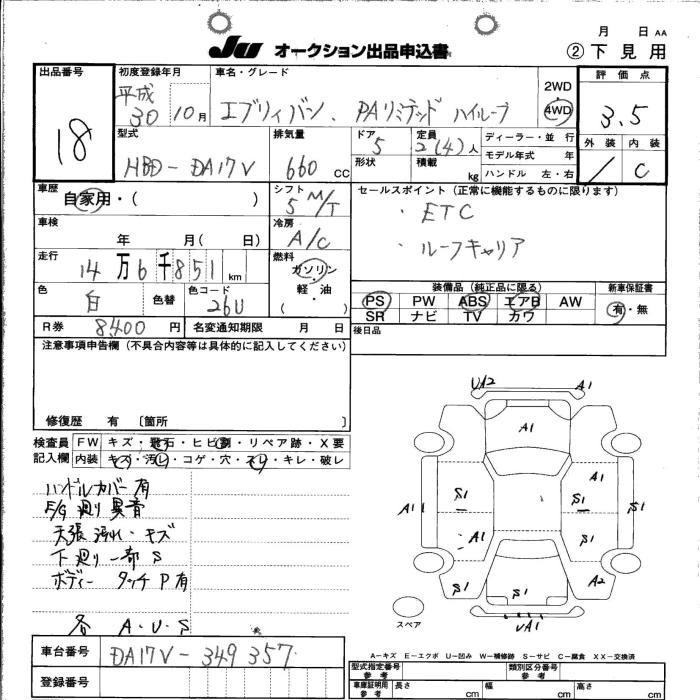 月 日 AA
JU オークション出品申込書 ②下見用
出品番号 初度登録年月 車名・グレード 2WD 評価点
18 平成30 10月 エブリィバン、PAリミテッド ハイルーフ 4WD 3.5
型式 排気量 ドア 定員 ディーラー・並行 外装 内装
HBD-DA17V 660 CC 5 2(4)人 モデル年式 年 / C
形状 積載 kg ハンドル 左・右
車歴 自家用・( ) シフト 5 M/T セールスポイント(正常に機能するものに限ります)
・ETC
車検 年 月( 日) 冷房 A/C
・ルーフキャリア
走行 14万6千851 km 燃料 ガソリン
軽・油
( )
色 白 色替 色コード 26U 装備品(純正品に限る) 新車保証書
PS PW ABS エアB AW 有・無
SR ナビ TV カワ
R券 8,400円 名変通知期限 月 日 後日品
注意事項申告欄(不具合内容等は具体的に記入してください)
修復歴 有 〔箇所 〕
検査員 FW キズ・飛石・ヒビ割・リペア跡・X要
記入欄 内装 キズ・汚レ・コゲ・穴・スレ・キレ・破レ
ハンドルカバー有
E/G廻り異音
天張汚れ・キズ
下廻り一部S
ボディー タッチP有
各 A・U・S
UA2 A1
A1
A1
A1 S1 S1 S1
A1 S1
S1 S1 A2
UA1
スペア
A-キズ E-エクボ U-凹み W-補修跡 S-サビ C-腐食 XX-交換済
車台番号 DA17V-349357
型式指定番号 類別区分番号
参考 参考
登録番号
車庫証明用 長さ 幅 高さ
参考 cm cm cm